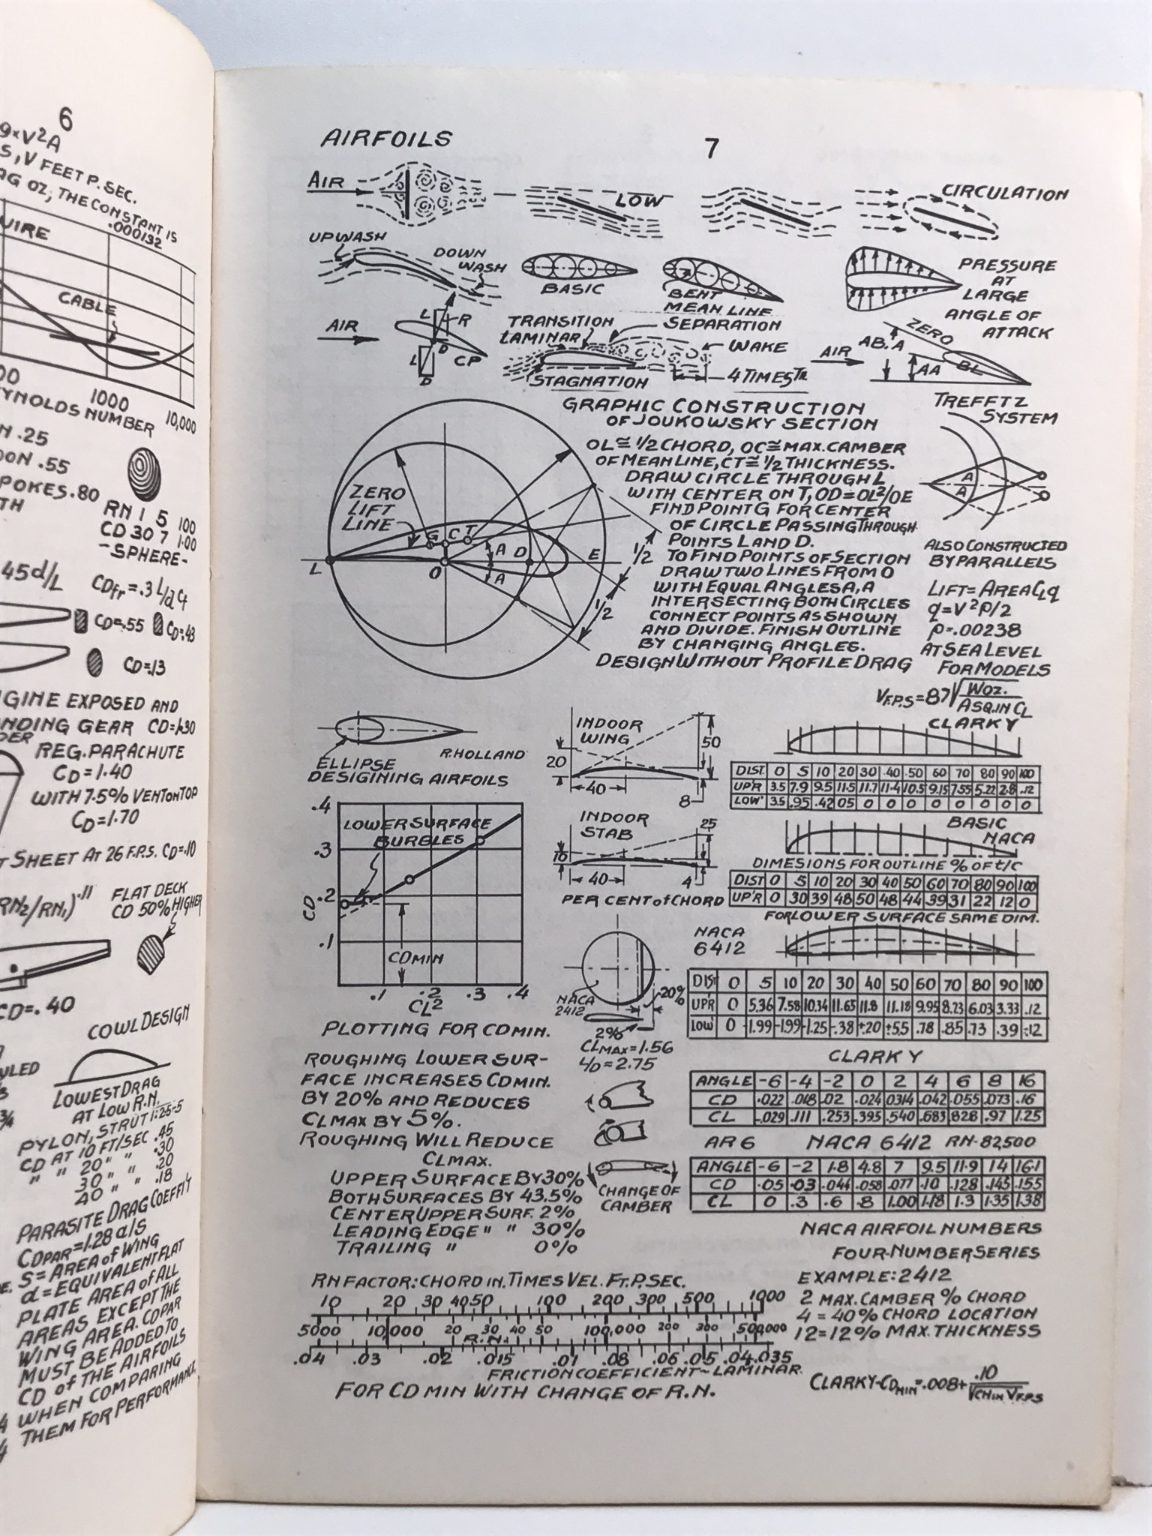 6
V²A
V FEET P. SEC.
OZ, THE CONSTANT IS
.000132
WIRE
CABLE
1000
10,000
REYNOLDS NUMBER
.25
.55
SPOKES .80
RN 1 5 100
CD 30 7 1.00
-SPHERE-
.45d/L
CDfr = .3 L/d Cf
CD=.55
CD=.43
CD=.13
ENGINE EXPOSED AND
LANDING GEAR CD=1.30
REG. PARACHUTE
CD=1.40
WITH 7.5% VENT ON TOP
CD=1.70
SHEET AT 26 F.P.S. CD=.10
(RN2/RN1).11
FLAT DECK
CD 50% HIGHER
CD=.40
COWL DESIGN
LOWEST DRAG
AT LOW R.N.
PYLON, STRUT 1:25-5
CD AT 10 FT/SEC .45
" " 20 " " .30
" 30 " " .20
" 40 " " .18
PARASITE DRAG COEFFI'T
CDPAR=1.28 a/s
S = AREA of WING
a = EQUIVALENT FLAT
PLATE AREA of ALL
AREAS EXCEPT THE
WING AREA. CDPAR
MUST BE ADDED TO
CD of THE AIRFOILS
WHEN COMPARING
THEM FOR PERFORMANCE
AIRFOILS
7
AIR
LOW
CIRCULATION
UPWASH
DOWN
WASH
BASIC
BENT
MEAN LINE
PRESSURE
AT
LARGE
ANGLE OF
ATTACK
AIR
L
R
D
L
D
CP
TRANSITION
LAMINAR
SEPARATION
WAKE
STAGNATION
4 TIMES
AIR
ZERO
AB.A
AA
BL
GRAPHIC CONSTRUCTION
OF JOUKOWSKY SECTION
OL≅1/2 CHORD, OC≅MAX.CAMBER
OF MEAN LINE, CT≅1/2 THICKNESS.
DRAW CIRCLE THROUGH L
WITH CENTER ON T, OD=OL²/OE
FIND POINT G FOR CENTER
OF CIRCLE PASSING THROUGH
POINTS L AND D.
TO FIND POINTS OF SECTION
DRAW TWO LINES FROM O
WITH EQUAL ANGLES A, A
INTERSECTING BOTH CIRCLES
CONNECT POINTS AS SHOWN
AND DIVIDE. FINISH OUTLINE
BY CHANGING ANGLES.
DESIGN WITHOUT PROFILE DRAG
ZERO
LIFT
LINE
G C T
A D
A
L
O
E
1/2
1/2
TREFFTZ
SYSTEM
A
A
ALSO CONSTRUCTED
BY PARALLELS
LIFT= AREA CLq
q=V²P/2
P=.00238
AT SEA LEVEL
FOR MODELS
VF.P.S=87√WOZ./ASQ.IN CL
ELLIPSE
R.HOLLAND
DESIGINING AIRFOILS
INDOOR
WING
20
50
40
8
INDOOR
STAB
25
40
4
PER CENT of CHORD
CLARKY
DIST. 0 5 10 20 30 40 50 60 70 80 90 100
UP'R 3.5 7.9 9.5 11.5 11.7 11.4 10.5 9.15 7.55 5.22 2.8 .12
LOW' 3.5 .95 .42 05 0 0 0 0 0 0 0 0
BASIC
NACA
DIMESIONS FOR OUTLINE % OF t/C
DIST 0 5 10 20 30 40 50 60 70 80 90 100
UP'R 0 30 39 48 50 48 44 39 31 22 12 0
FOR LOWER SURFACE SAME DIM.
NACA
6412
DIST 0 5 10 20 30 40 50 60 70 80 90 100
UPR 0 5.36 7.58 10.34 11.65 11.8 11.18 9.95 8.23 6.03 3.33 .12
LOW 0 -1.99 -1.99 -1.25 -.38 +.20 +.55 .78 .85 .73 .39 -.12
.4
.3
.2
.1
CD
LOWER SURFACE
BURBLES
CDMIN
.1 .2 .3 .4
CL2
PLOTTING FOR CDMIN.
NACA
2412
20%
2%
CLMAX=1.56
L/D=2.75
CHANGE OF
CAMBER
ROUGHING LOWER SUR-
FACE INCREASES CDMIN.
BY 20% AND REDUCES
CLMAX BY 5%.
ROUGHING WILL REDUCE
CLMAX.
UPPER SURFACE BY 30%
BOTH SURFACES BY 43.5%
CENTER UPPER SURF. 2%
LEADING EDGE " " 30%
TRAILING " 0%
CLARKY
ANGLE -6 -4 -2 0 2 4 6 8 16
CD .022 .018 .02 .024 .0314 .042 .055 .073 .16
CL .029 .111 .253 .395 .540 .683 .828 .97 1.25
AR 6 NACA 6412 RN-82,500
ANGLE -6 -2 1.8 4.8 7 9.5 11.9 14 16.1
CD .05 .03 .044 .058 .077 .10 .128 .145 .155
CL 0 .3 .6 .8 1.00 1.18 1.3 1.35 1.38
NACA AIRFOIL NUMBERS
FOUR-NUMBER SERIES
EXAMPLE: 2412
2 MAX. CAMBER % CHORD
4 = 40% CHORD LOCATION
12=12% MAX. THICKNESS
CLARKY-CDMIN=.008+.10/√CHIN VF.P.S
RN FACTOR: CHORD IN. TIMES VEL. FT.P.SEC.
10 20 30 40 50 100 200 300 500 1000
5000 10,000 20 30 40 50 100,000 200 300 500,000
R.N.
.04 .03 .02 .015 .01 .08 .06 .05 .04 .035
FRICTION COEFFICIENT-LAMINAR
FOR CD MIN WITH CHANGE OF R.N.